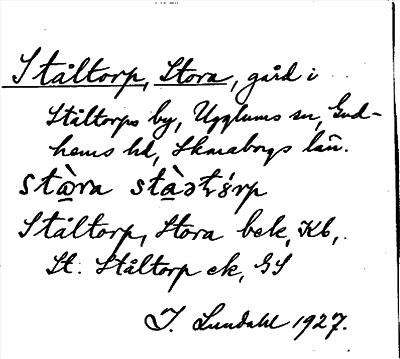 Ståltorp, Stora, gård i
Ståltorps by, Ugglums sn, Gud-
hems hd, Skaraborgs län.
Ståltorp, Stora bek, Kb,.
St. Ståltorp ek, GS
I. Lundahl 1927.